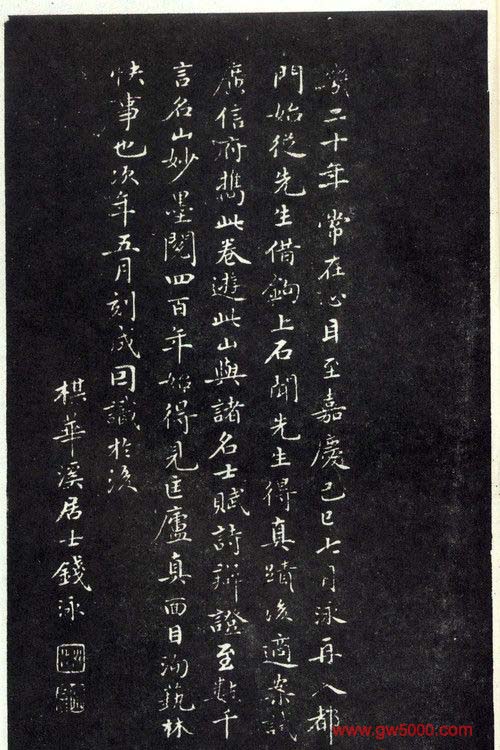 二十年常在心目至嘉慶己巳七月泳再入都
門始從先生借鉤上石聞先生得真蹟後適案試
廣信府攜此卷遊此山與諸名士賦詩辯證至數千
言名山妙墨閱四百年始得見匡廬真面目洵藝林
快事也次年五月刻成因識於後
華溪居士錢泳
www.gw5000.com